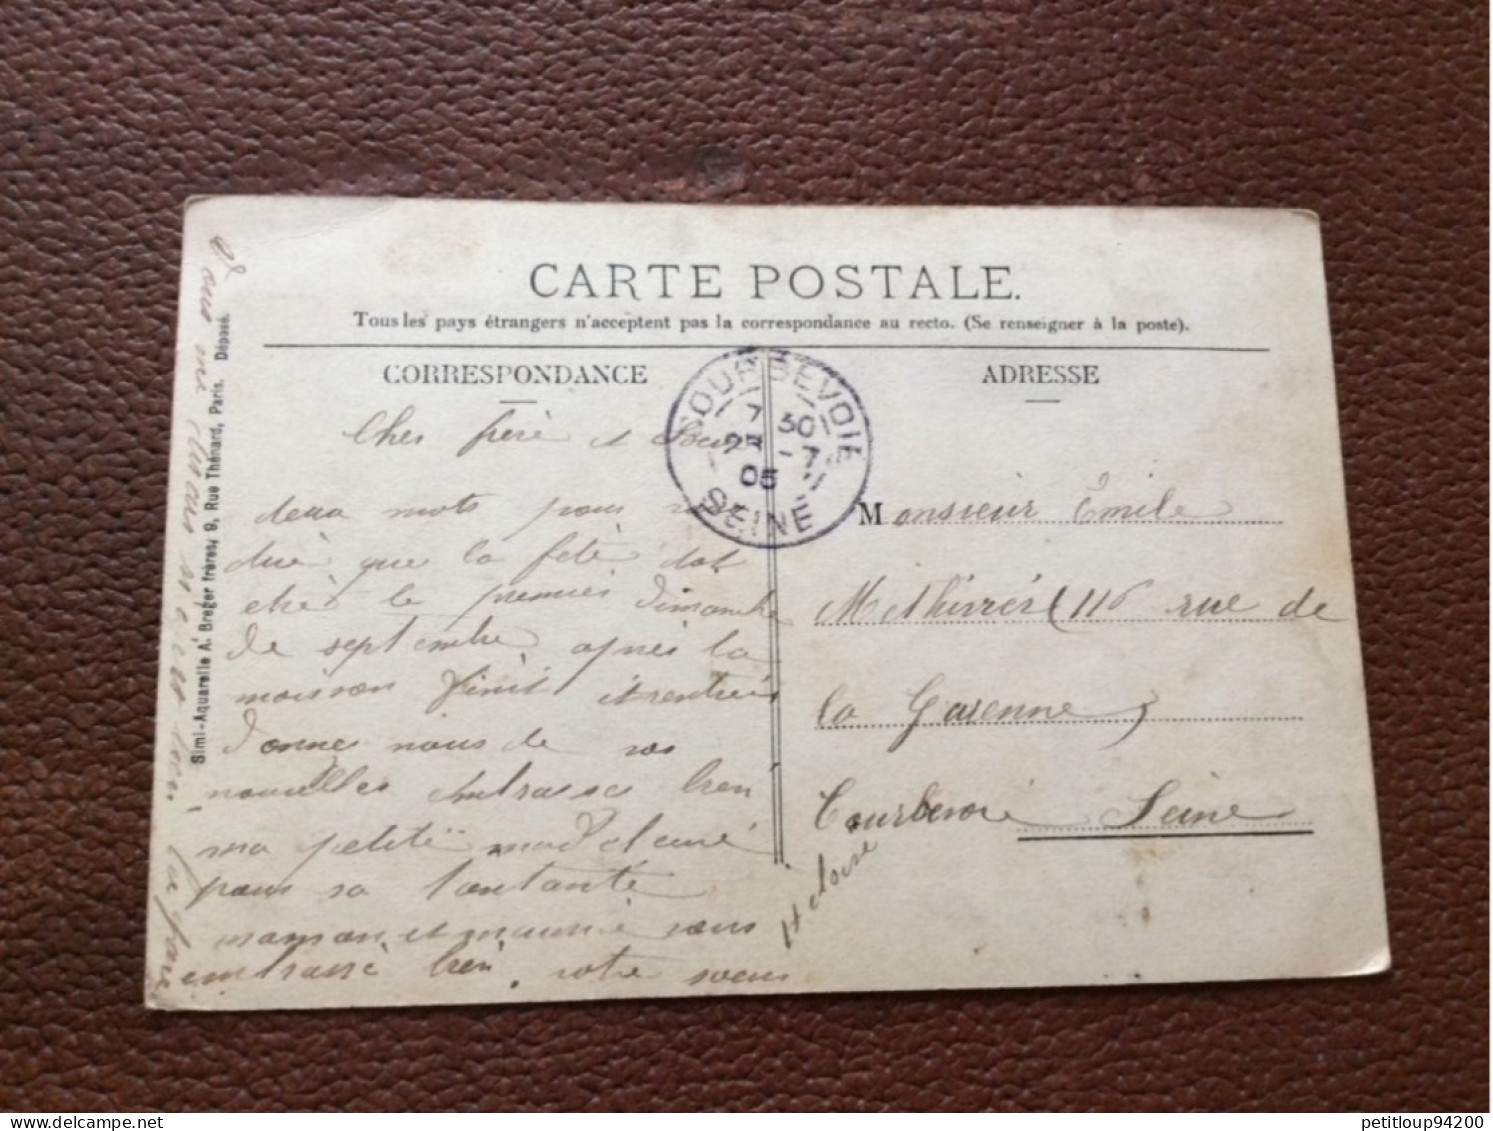 CARTE POSTALE.
Tous les pays étrangers n'acceptent pas la correspondance au recto. (Se renseigner à la poste).
CORRESPONDANCE
ADRESSE
COURBEVOIE
7 30
25 -7
05
SEINE
Cher frère et Soeur
deux mots pour vous
dire que la fête doit
etre le premier Dimanche
de septembre après la
moisson finit et rentrée
Donne nous de vos
nouvelles embrasser bien
ma petite madeleine
pour sa tantante
maman et maurice vous
embrasse bien. votre soeur
Heloise
Monsieur Emile
116 rue de
la Garenne
Courbevoie Seine
Simi-Aquarelle A. Breger frères, 9, Rue Thénard, Paris. Déposé.
petitloup94200